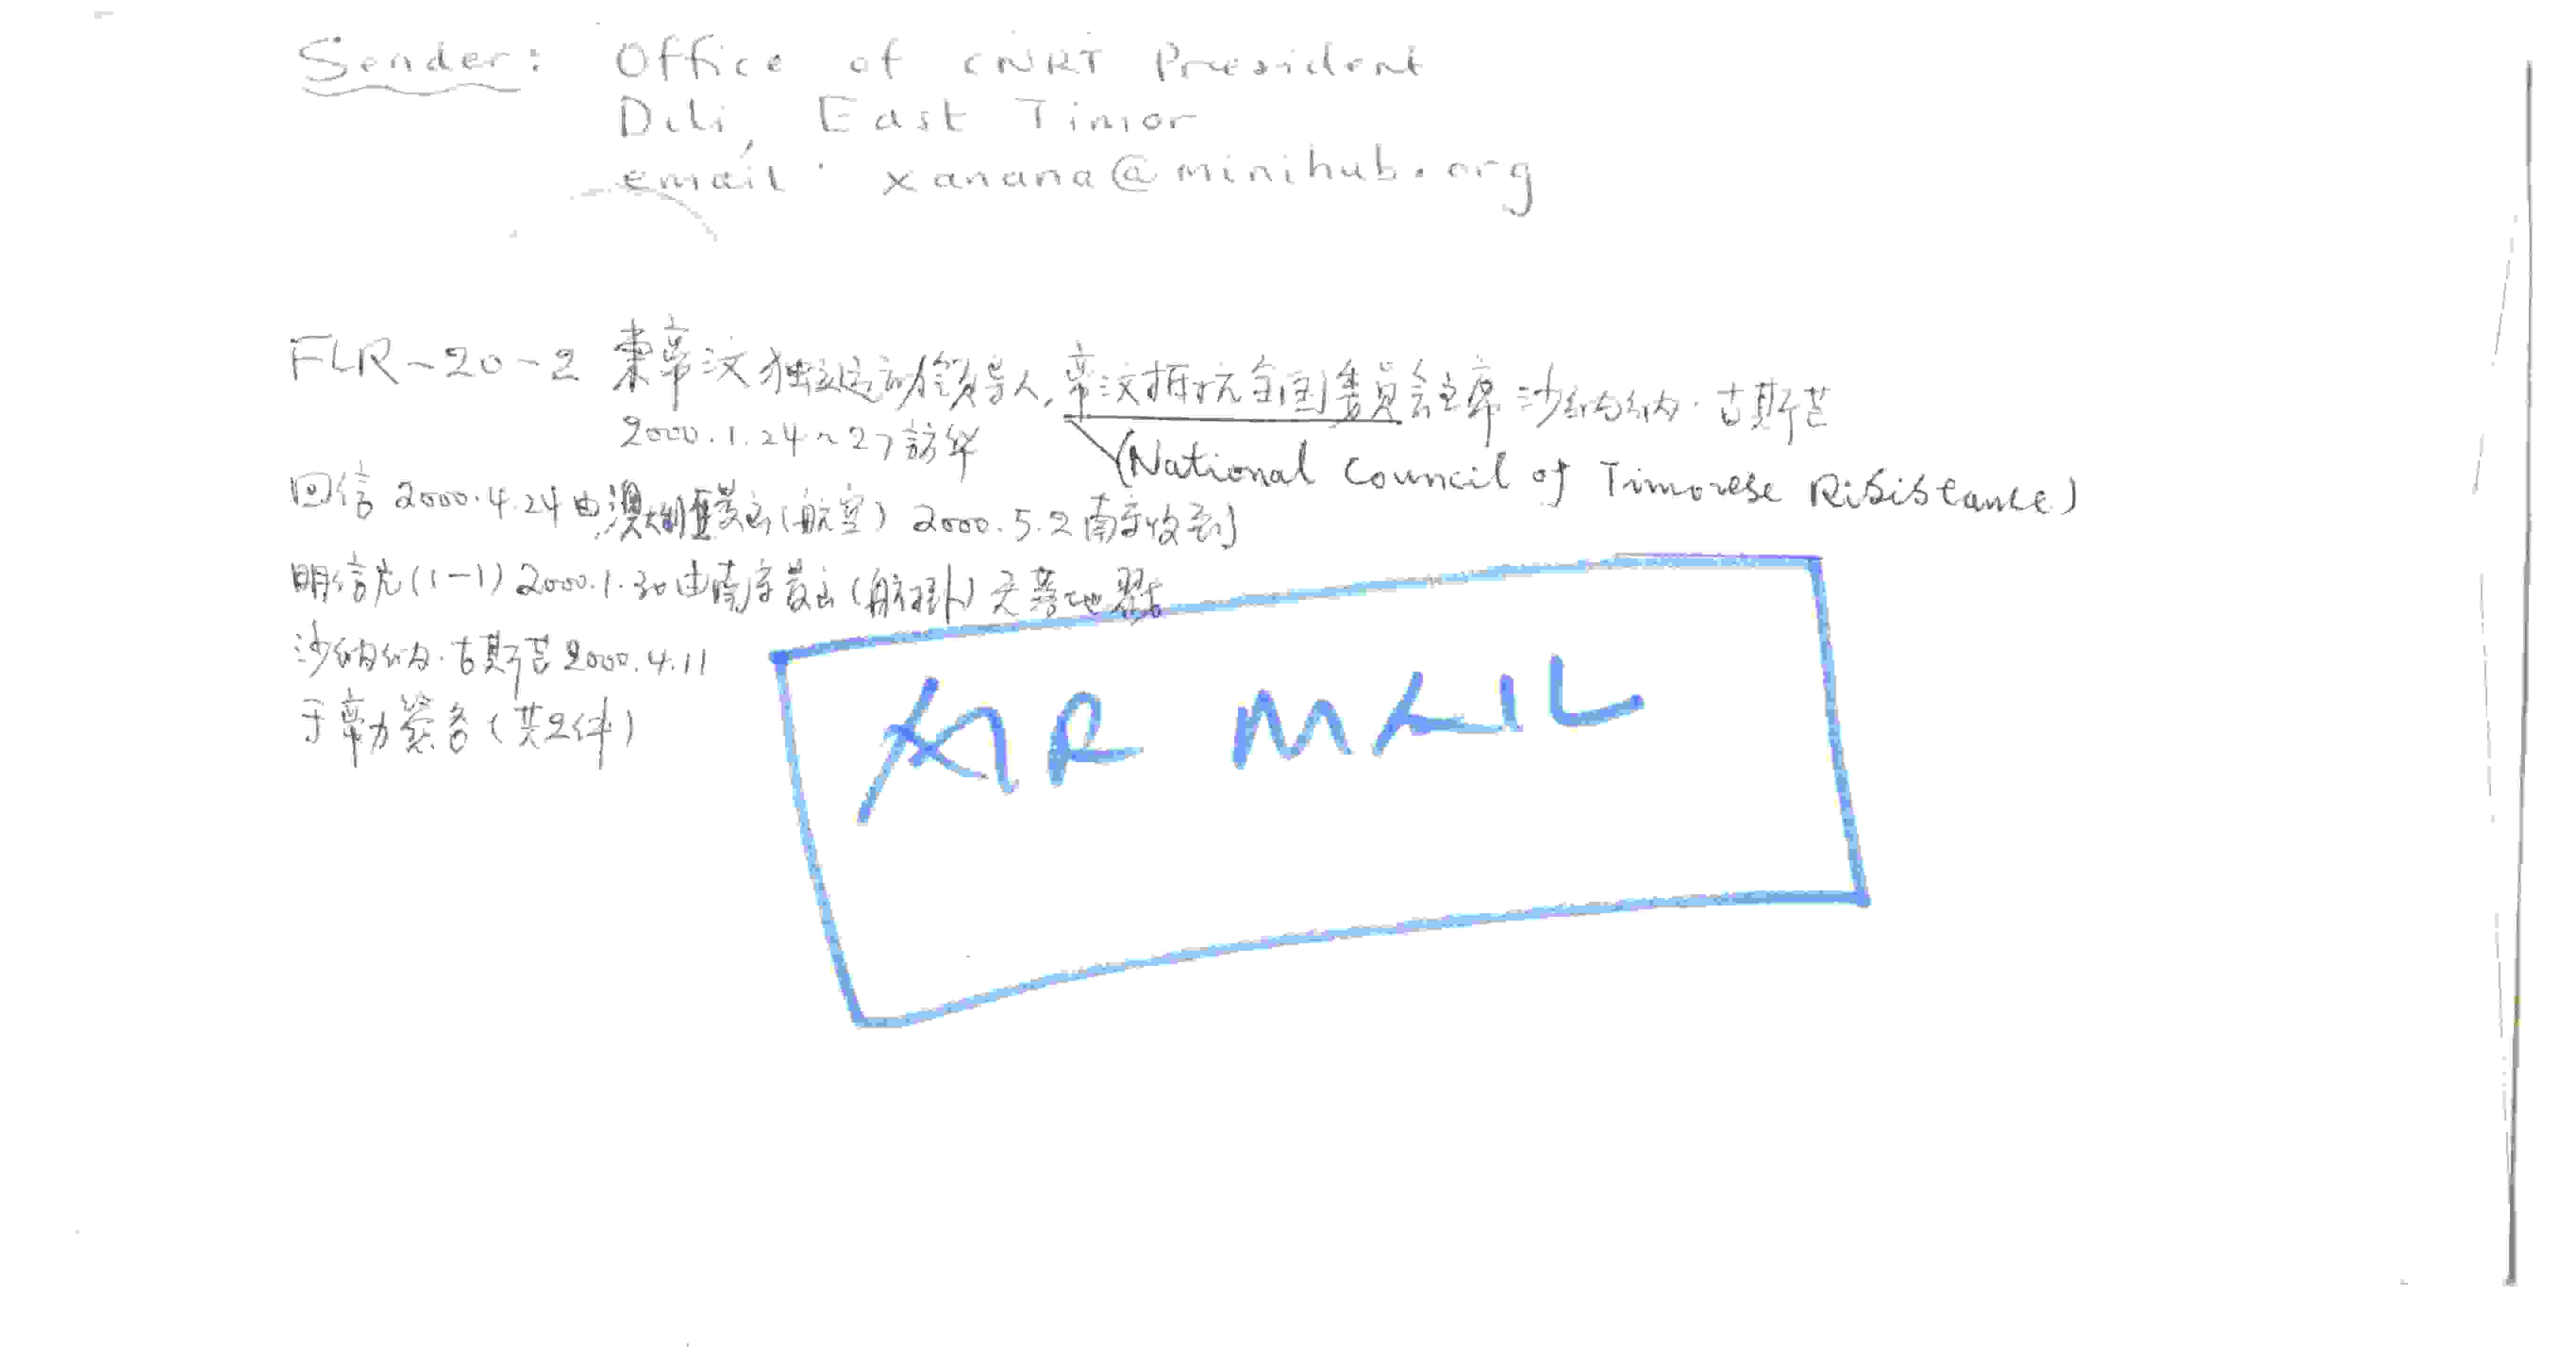 Sender: Office of CNRT President
Dili, East Timor
email: xanana@minihub.org
FLR-20-2 東帝汶独立运动领导人,帝汶抵抗全国委員会主席沙纳纳·古斯芒
2000.1.24~27訪华
(National Council of Timorese Risistance)
回信 2000.4.24由澳大利亚发出(航空) 2000.5.2南宁收到
明信片(1-1)2000.1.30由南宁发出(航挂)无落地戳
沙纳纳·古斯芒2000.4.11
于帝力签名(共2件)
AIR MAIL